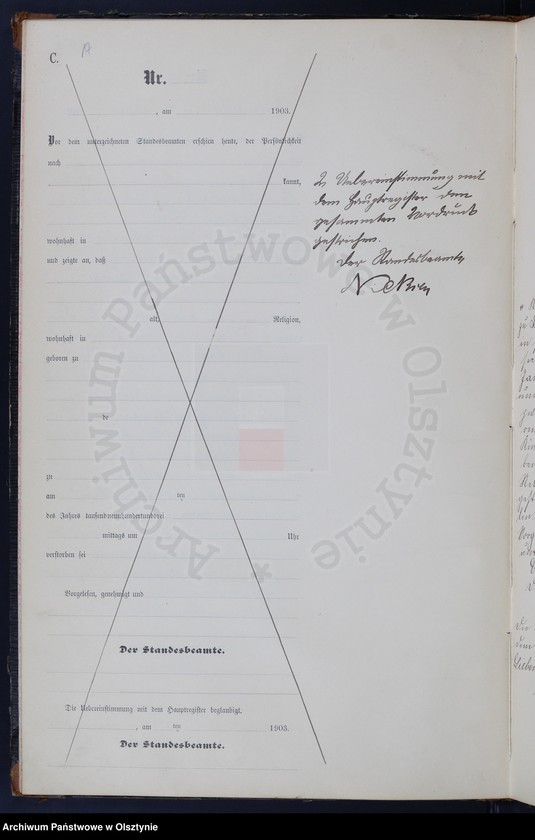 C.
Nr.
, am 1903.
Vor dem unterzeichneten Standesbeamten erschien heute, der Persönlichkeit
nach
kannt,
wohnhaft in
und zeigte an, daß
alt, Religion,
wohnhaft in
geboren zu
de
zu
am ten
des Jahres tausendneunhundertunddrei
mittags um Uhr
verstorben sei
Vorgelesen, genehmigt und
Der Standesbeamte.
Die Uebereinstimmung mit dem Hauptregister beglaubigt.
, am ten 1903.
Der Standesbeamte.
In Uebereinstimmung mit
dem Hauptregister den
gesammten Vordruck
gestrichen.
Der Standesbeamte
Archiwum Państwowe w Olsztynie *
Archiwum Państwowe w Olsztynie